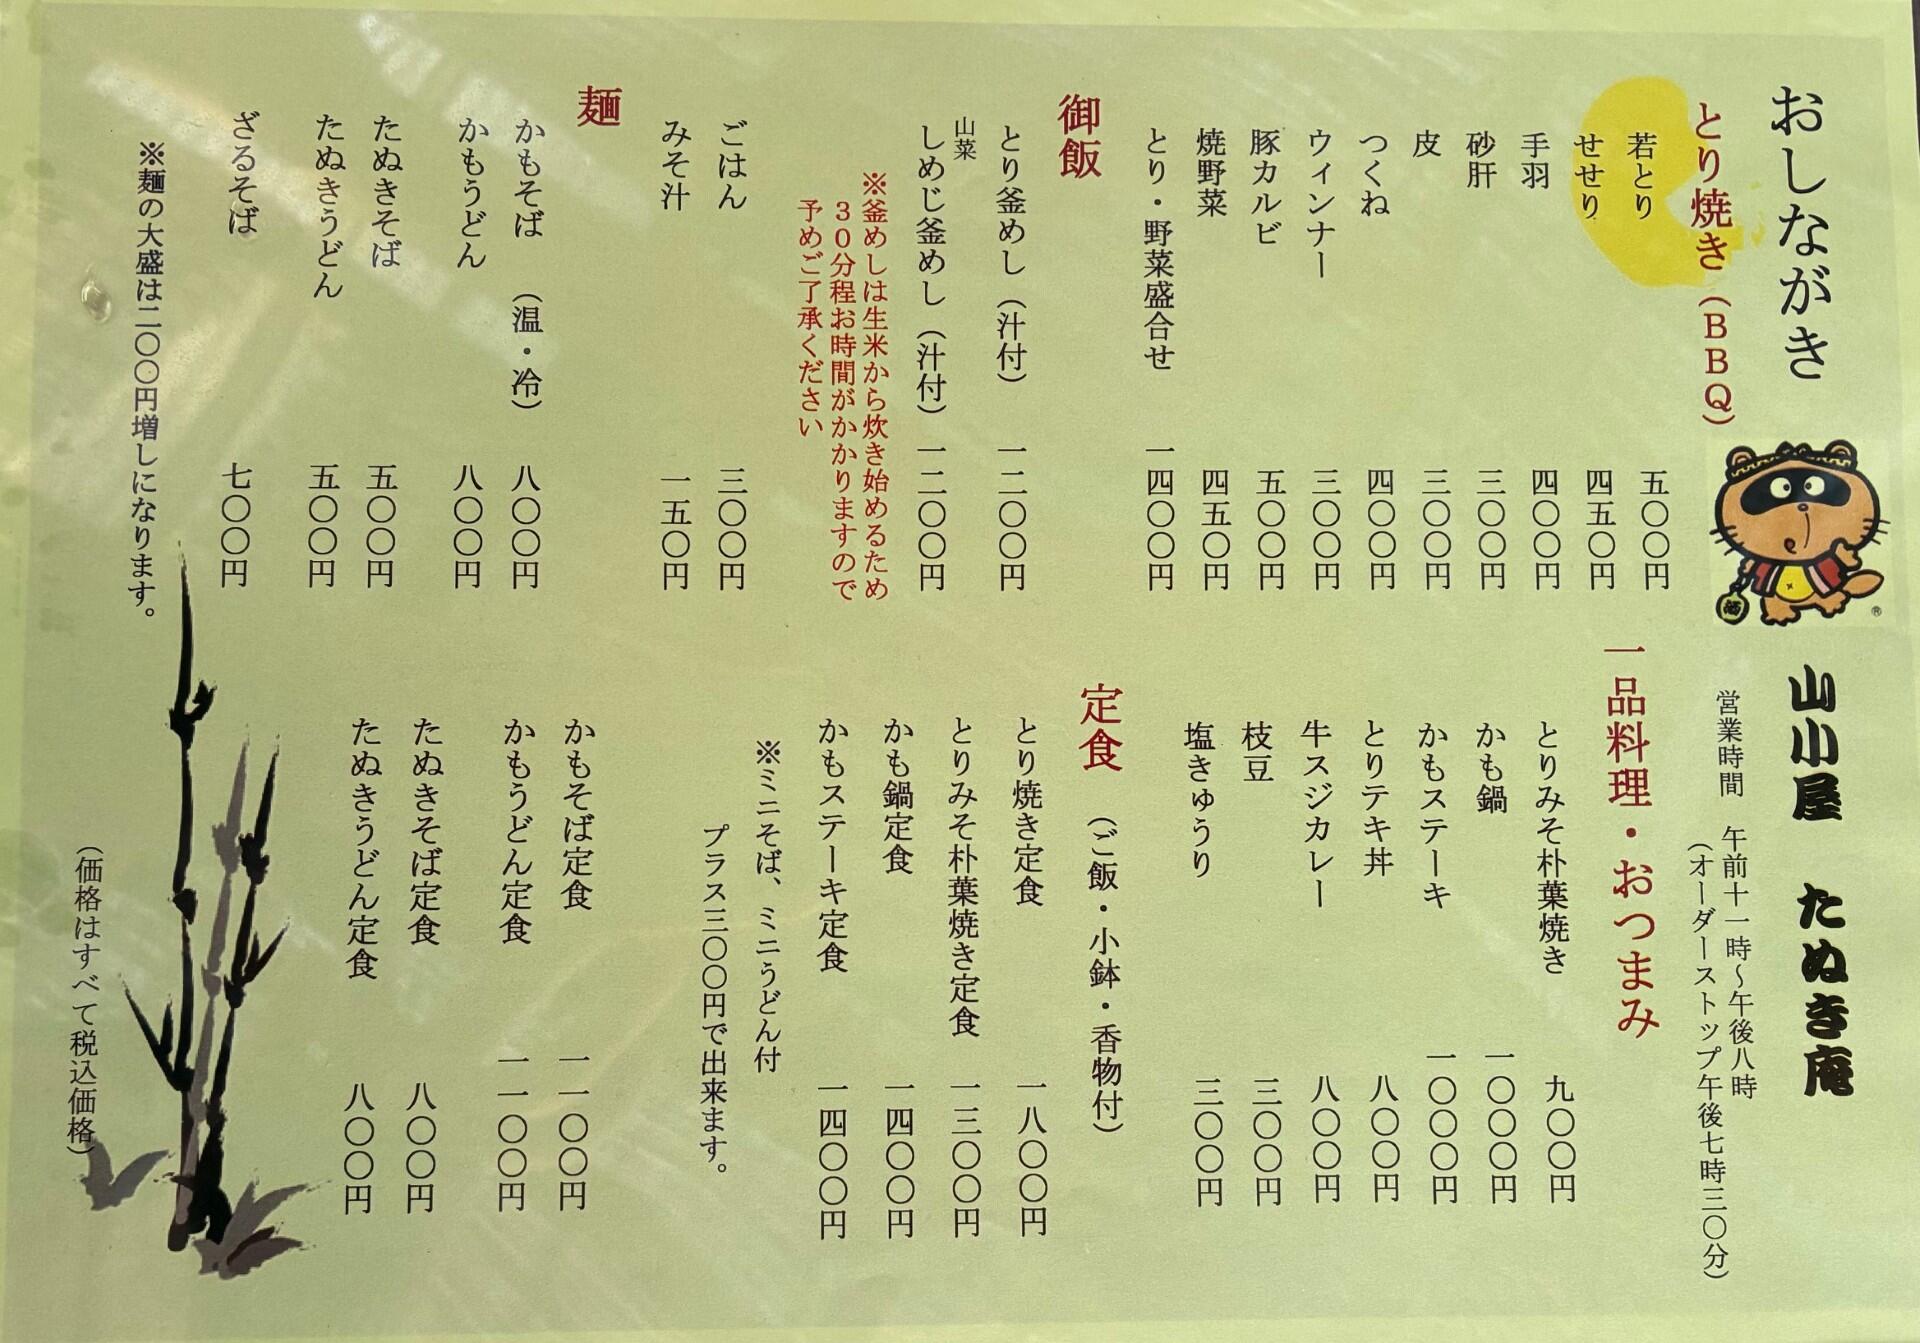 おしながき
山小屋 たぬき庵
営業時間 午前十一時～午後八時
（オーダーストップ午後七時三〇分）
とり焼き（ＢＢＱ）
若とり 五〇〇円
せせり 四五〇円
手羽 四〇〇円
砂肝 三〇〇円
皮 三〇〇円
つくね 四〇〇円
ウィンナー 三〇〇円
豚カルビ 五〇〇円
焼野菜 四五〇円
とり・野菜盛合せ 一四〇〇円
御飯
とり釜めし（汁付） 一二〇〇円
山菜
しめじ釜めし（汁付） 一二〇〇円
※釜めしは生米から炊き始めるため
３０分程お時間がかかりますので
予めご了承ください
ごはん 三〇〇円
みそ汁 一五〇円
麺
かもそば （温・冷） 八〇〇円
かもうどん 八〇〇円
たぬきそば 五〇〇円
たぬきうどん 五〇〇円
ざるそば 七〇〇円
※麺の大盛は二〇〇円増しになります。
一品料理・おつまみ
とりみそ朴葉焼き 九〇〇円
かも鍋 一〇〇〇円
かもステーキ 一〇〇〇円
とりテキ丼 八〇〇円
牛スジカレー 八〇〇円
枝豆 三〇〇円
塩きゅうり 三〇〇円
定食 （ご飯・小鉢・香物付）
とり焼き定食 一八〇〇円
とりみそ朴葉焼き定食 一三〇〇円
かも鍋定食 一四〇〇円
かもステーキ定食 一四〇〇円
※ミニそば、ミニうどん付
プラス三〇〇円で出来ます。
かもそば定食 一一〇〇円
かもうどん定食 一一〇〇円
たぬきそば定食 八〇〇円
たぬきうどん定食 八〇〇円
（価格はすべて税込価格）
酒
®